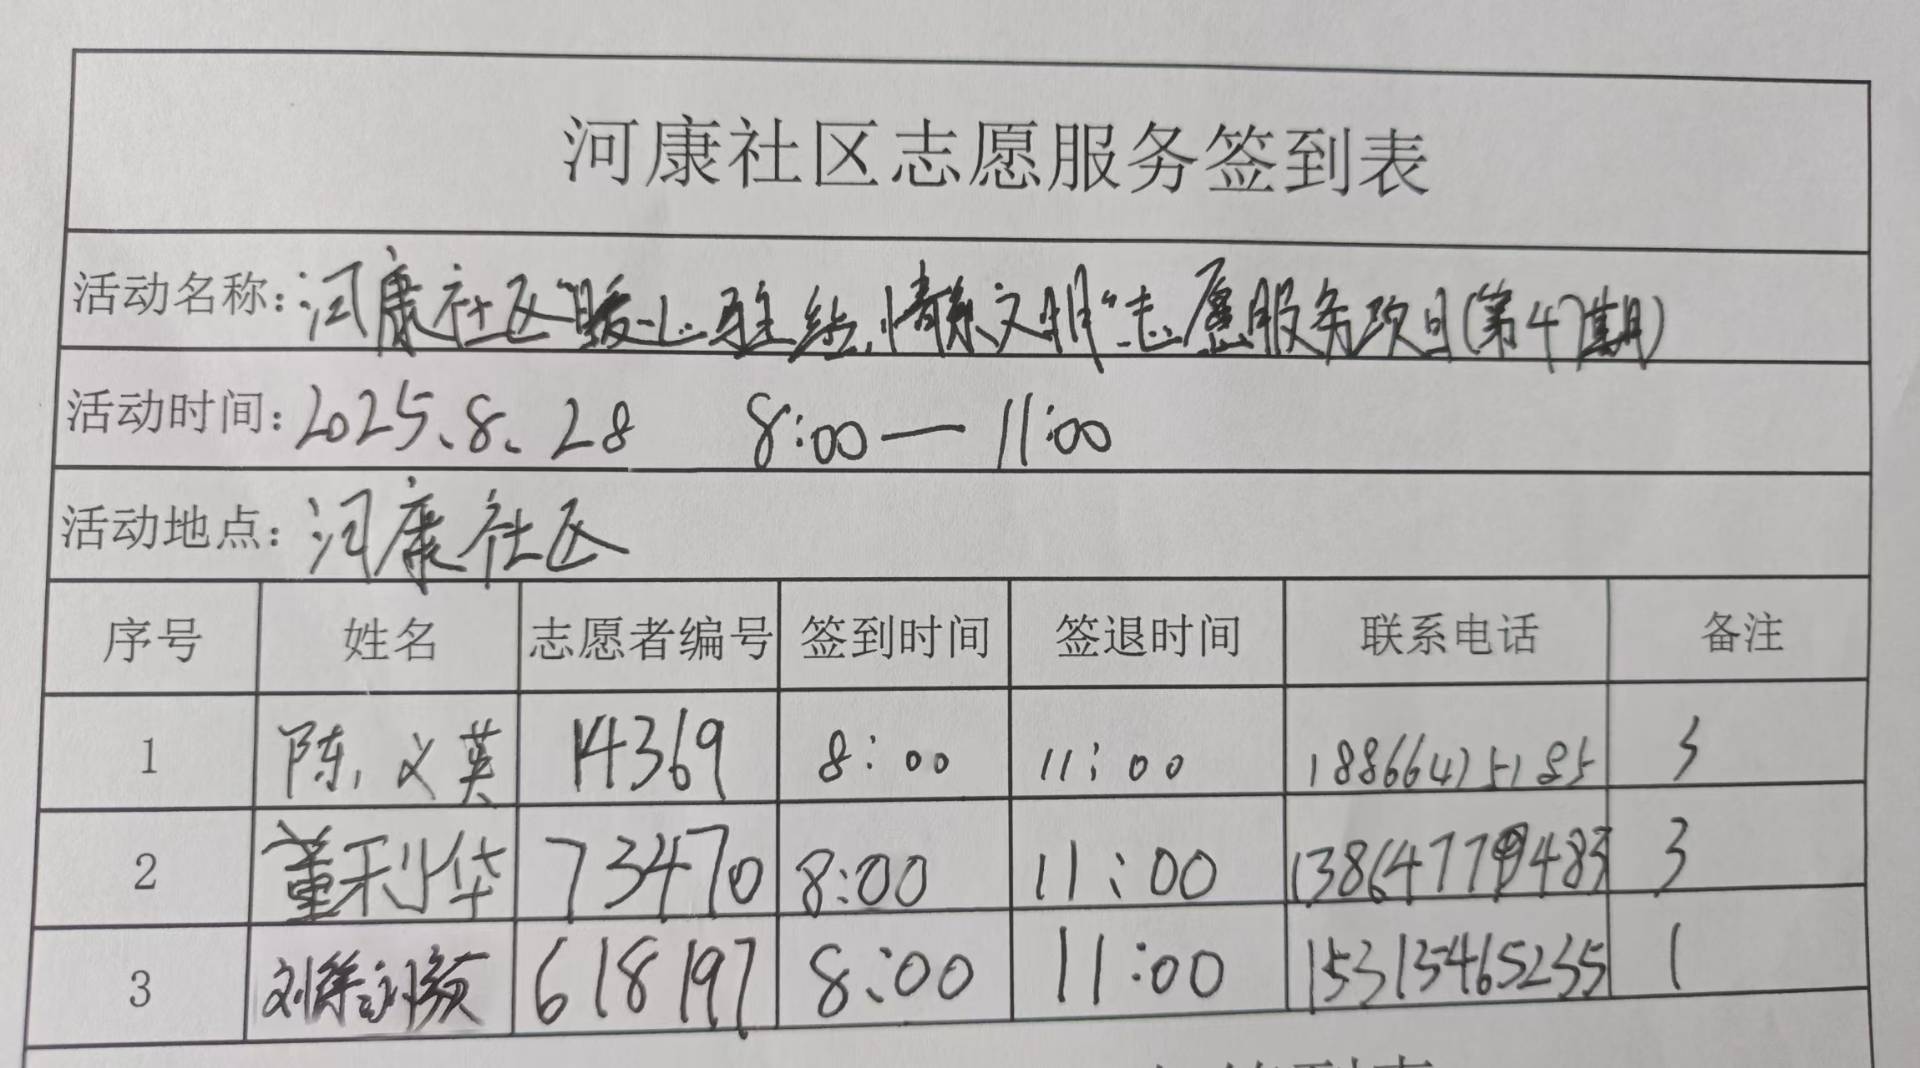 河康社区志愿服务签到表
活动名称:河康社区"暖心驿站,情系文明"志愿服务项目(第47期)
活动时间:2025.8.28 8:00—11:00
活动地点:河康社区
序号 姓名 志愿者编号 签到时间 签退时间 联系电话 备注
1 陈义英 14369 8:00 11:00 3
2 董利华 73470 8:00 11:00 13864779483 3
3 618197 8:00 11:00 15313465235 1